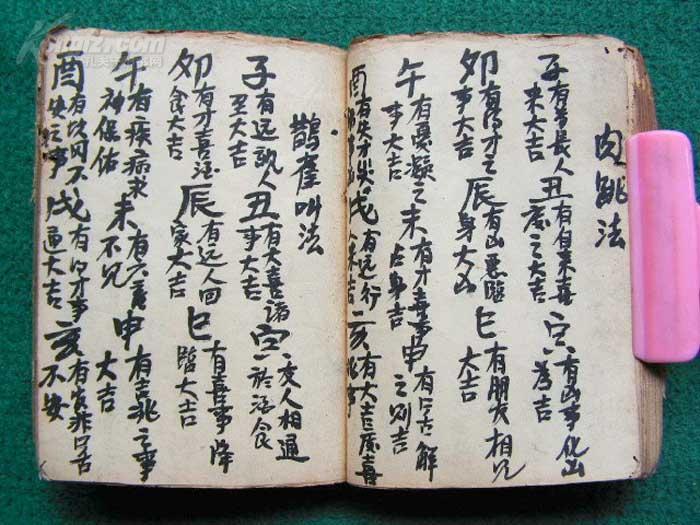 肉跳法
子有尊長人
来大吉
丑有自来喜
慶之大吉
寅有凶事化
為吉
卯有得才之
事大吉
辰有凶惡臨
身大凶
巳有朋友相見
大吉
午有憂疑之
事大吉
未有才喜事
占身吉
申有口舌解
之则吉
酉有失才
戌有远行
来吉
亥有大吉慶喜
鵲雀叫法
子有远親人
至大吉
丑有大喜諸
事大吉
寅交人相通
於酒食
卯有才喜酒
食大吉
辰有远人回
家大吉
巳有喜事降
臨大吉
午有疾病求
神保佑
未有六畜
不見
申有吉兆之事
大吉
酉有
失之事
戌有口才事
通大吉
亥有家非口舌
不安